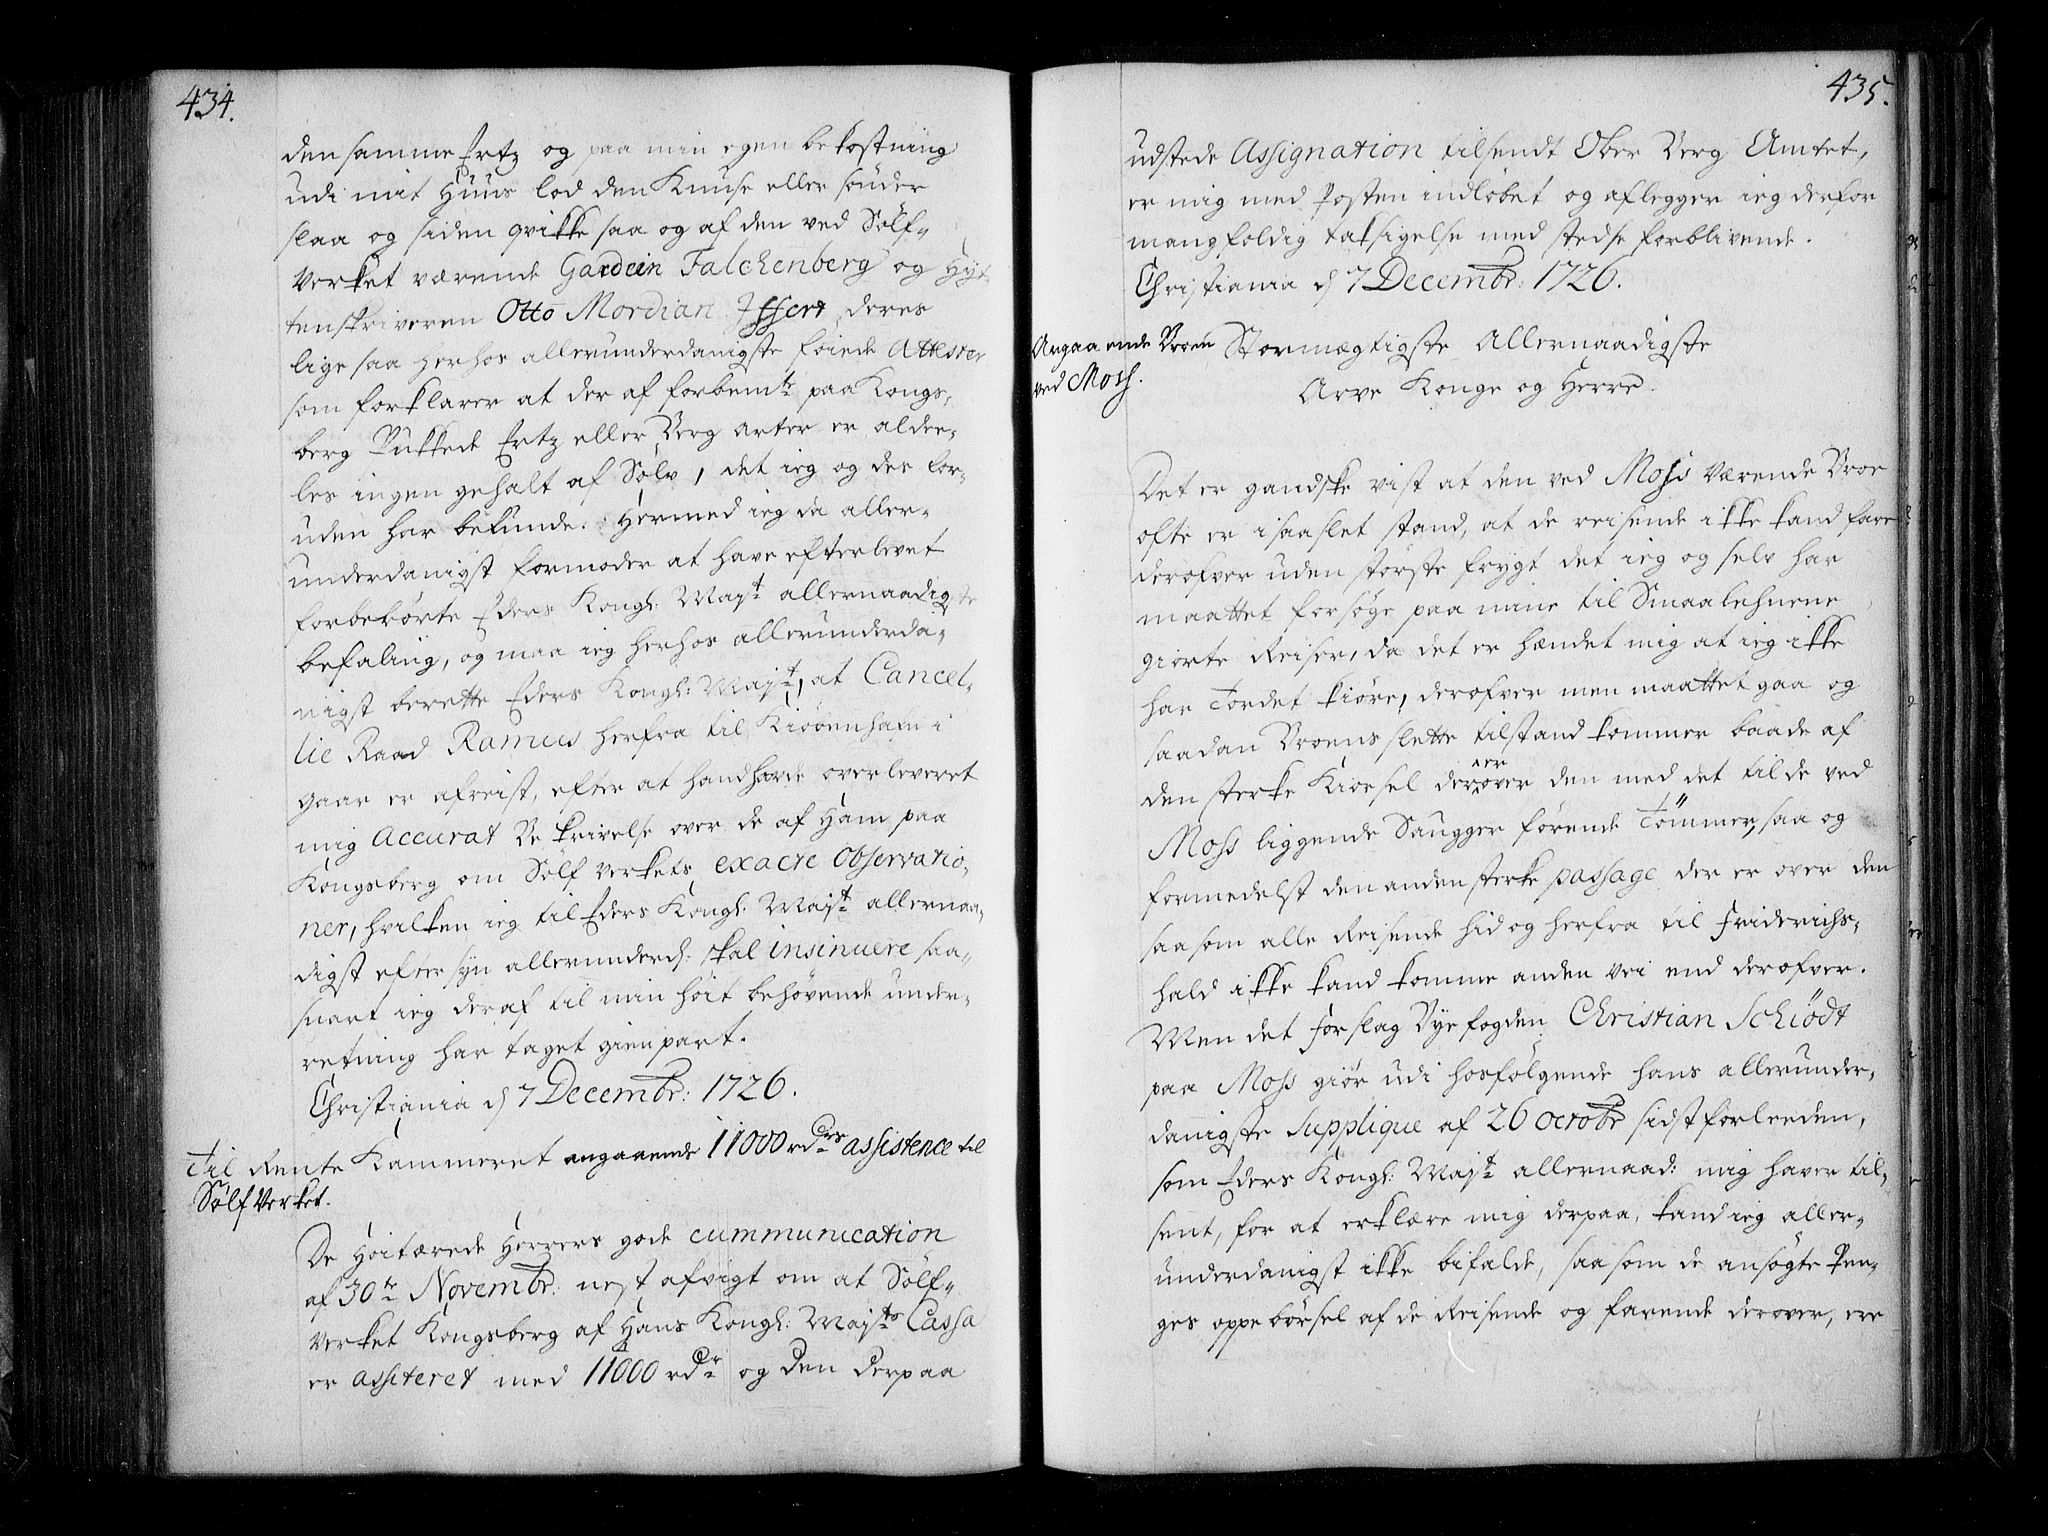 434.
den samme Ertz og paa min egen bekostning
udi mit Huus lod den Knuse eller sönder
slaa og siden qvikke saa og af den ved Sølf-
verket værende Gardein Falchenberg og Hyt-
tenskriveren Otto Mordian Issert deres
lige saa herhos allerunderdanigste föiede Attester
som forklarer at der af forbemte paa Kongs-
berg Pukkede Ertz eller Berg arter er alde-
les ingen gehalt af Sølv, det ieg og des for-
uden har befunde. Hermed ieg da aller-
underdanigst formoder at have efterlevet
forberörte Eders Kongl: Mayt allernaadigste
befaling, og maa ieg herhos allerunderda-
nigst berette Eders Kongl: Mayt, at Cancel-
lie Raad Ramus herfra til Kiöbenhafn i
gaar er afreist, efter at hand harde overleveret
mig Accurat Beskrivelse over de af Ham paa
Kongsberg om Sølf verkets exacte Observatio-
ner, hvilken ieg til Eders Kongl: Mayt allernaa-
digst eftersyn allerunderd: skal insinuere saa-
snart ieg deraf til min höit behövende under-
retning har taget gienpart.
Christiania d 7 Decembr: 1726.
Til Rente Kammeret angaaende 11000 rdrs assistence til
Sølf Verket.
De Höitærede Herrers gode cummunication
af 30te Novembr: nest afvigt om at Sølf-
verket Kongsberg af Hans Kongl: Mayts Cassa
er assiteret med 11000 rdr og den derpaa
435.
udstede Assignation tilsendt Ober Berg Amtet,
er mig med Posten indløbet og aflegger ieg derfor
mangfoldig taksigelse med stedse forblivende.
Christiania d 7 Decembr: 1726.
Angaaende Broen
ved Moss.
Stormægtigste Allernaadigste
Arve Konge og Herre.
Det er gandske vist at den ved Moss værende Broe
ofte er i saa slet stand, at de reisende ikke kand fare
derofver uden störste frygt det ieg og selv har
maattet forsöge paa mine til Smaalehnene
giorte Reiser, da det er hændet mig at ieg ikke
har Tordet kiöre, derofver men maattet gaa og
saadan Broens slette tilstand kommer baade af
den sterke Kiörsel der er over den med det til de ved
Moss liggende Saugger förende Tömmer, saa og
formedelst den anden sterke passage der er over den
saasom alle Reisende hid og herfra til Friderichs-
hald ikke kand komme anden vei end derofver.
Men det forslag Byefogden Christian Schiödt
paa Moss giör udi hosfölgende hans allerunder-
danigste Supplique af 26 octobr sidstforleeden,
som Eders Kongl: Mayt allernaad: mig haver til-
sent, for at erklære mig derpaa, kand ieg aller-
underdanigst ikke bifalde, saasom de ansögte Pen-
ges oppebörsel af de Reisende og farende derover, ere